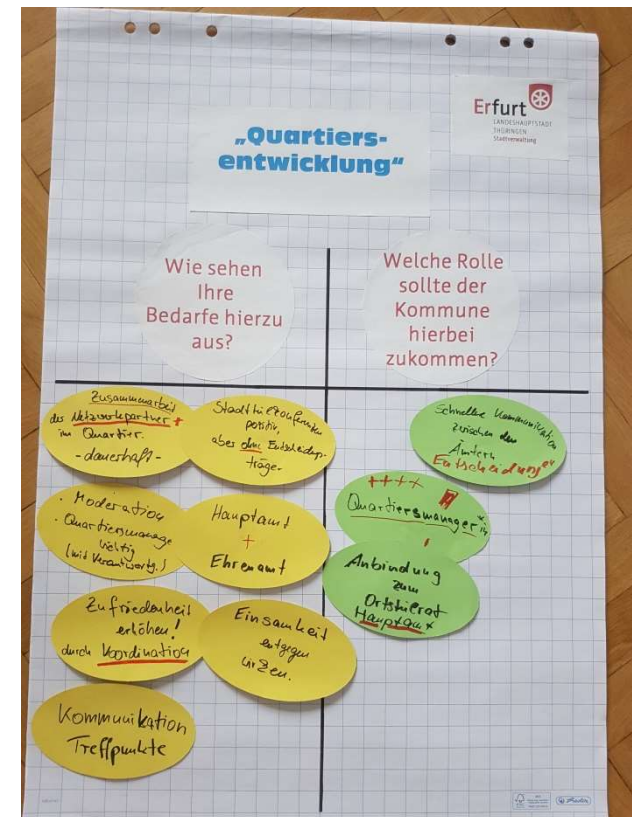 Erfurt
LANDESHAUPTSTADT
THÜRINGEN
Stadtverwaltung
„Quartiers-
entwicklung“
Wie sehen
Ihre
Bedarfe hierzu
aus?
Welche Rolle
sollte der
Kommune
hierbei
zukommen?
Zusammenarbeit
der Netzwerkpartner +
im Quartier.
- dauerhaft -
Stadtteilkonferenzen
positiv,
aber ohne Entscheidungs-
träger
· Moderation
· Quartiersmanage
wichtig
(mit Verantwortg.)
Hauptamt
+
Ehrenamt
Zufriedenheit
erhöhen!
durch Koordination
Einsamkeit
entgegen
Kommunikation
Treffpunkte
Schnelle Kommunikation
zwischen den
Ämtern
Entscheidungen
++++
Quartiersmanager*in
Anbindung
zum
Ortsteilrat
Hauptamt